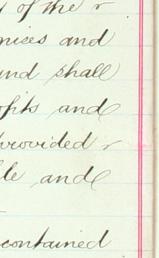 of the
nises and
und shall
ofits and
provided
le and
contained